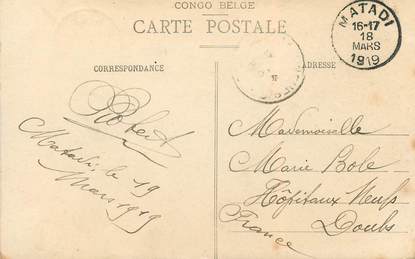 CONGO BELGE
CARTE POSTALE
CORRESPONDANCE
ADRESSE
MATADI
16-17
18
MARS
1919
Robert
Matadi, le 19
Mars 1919
Mademoiselle
Marie Bole
Hôpitaux Neufs
Doubs
France